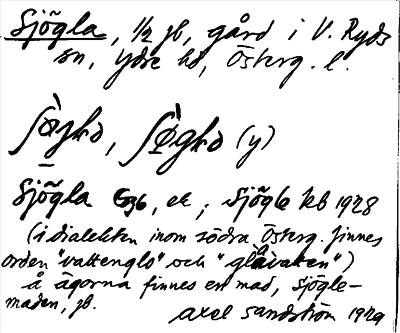 Sjögla, 1/2 jb, gård i V. Ryds
sn, Ydre hd, Österg. l.
(y)
Sjögla G36, ek; Sjögle kb 1928
(i dialekten inom södra Österg. finnes
orden "vattenglo" och "glåvaken")
å ägorna finnes en mad, Sjögle-
maden, jb.
Axel Sandström 1929